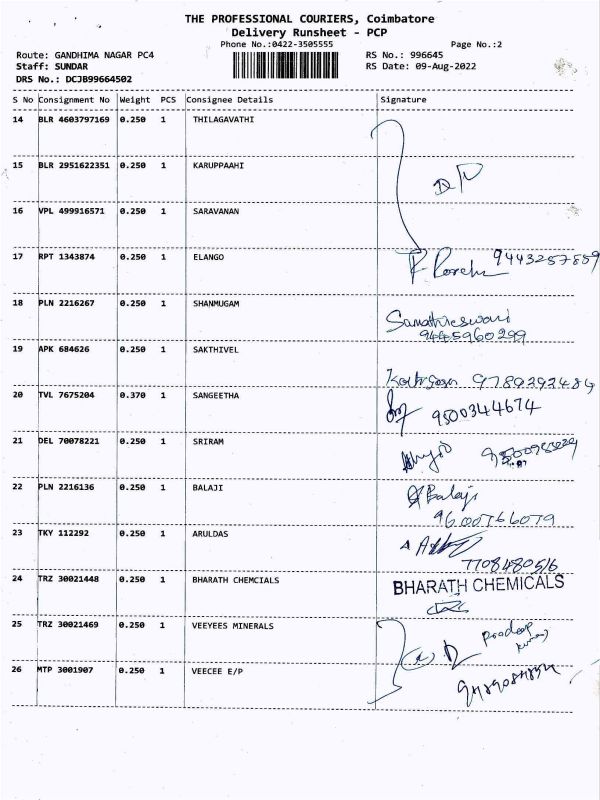 THE PROFESSIONAL COURIERS, Coimbatore
Delivery Runsheet - PCP
Phone No.:0422-3505555 Page No.:2
Route: GANDHIMA NAGAR PC4 RS No.: 996645
Staff: SUNDAR RS Date: 09-Aug-2022
DRS No.: DCJB99664502
S No Consignment No Weight PCS Consignee Details Signature
14 BLR 4603797169 0.250 1 THILAGAVATHI
15 BLR 2951622351 0.250 1 KARUPPAAHI
16 VPL 499916571 0.250 1 SARAVANAN
17 RPT 1343874 0.250 1 ELANGO
18 PLN 2216267 0.250 1 SHANMUGAM
9445960299
19 APK 684626 0.250 1 SAKTHIVEL
9789292484
20 TVL 7675204 0.370 1 SANGEETHA
9500344674
21 DEL 70078221 0.250 1 SRIRAM
22 PLN 2216136 0.250 1 BALAJI
Balaji
9600766079
23 TKY 112292 0.250 1 ARULDAS
24 TRZ 30021448 0.250 1 BHARATH CHEMCIALS
BHARATH CHEMICALS
25 TRZ 30021469 0.250 1 VEEYEES MINERALS
Pradeep
Kumar
26 MTP 3001907 0.250 1 VEECEE E/P